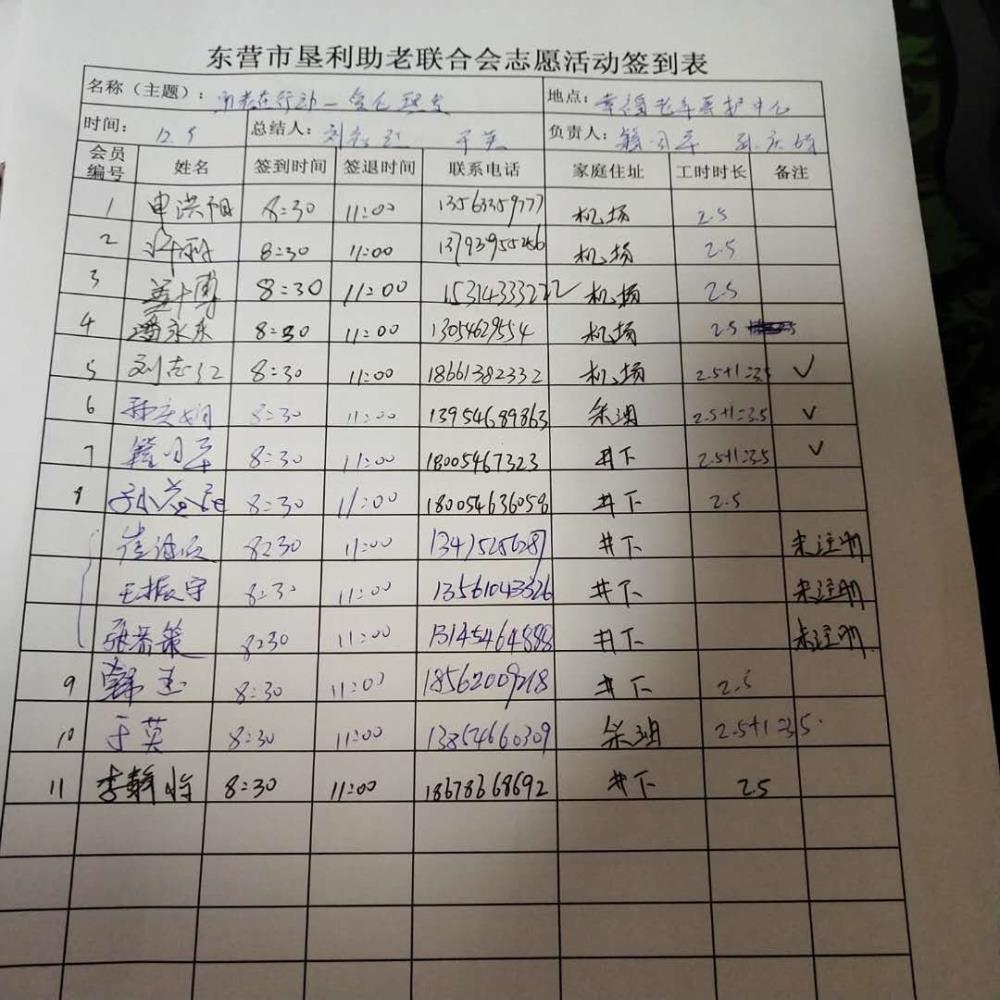 东营市垦利助老联合会志愿活动签到表
名称（主题）： 地点： 幸福老年医护中心
时间： 12.5 总结人： 刘志红 于英 负责人：
会员编号 姓名 签到时间 签退时间 联系电话 家庭住址 工时时长 备注
1 申洪阳 8:30 11:00 13563359777 机场 2.5
2 8:30 11:00 13793955256 机场 2.5
3 8:30 11:00 15314333222 机场 2.5
4 潘永东 8:30 11:00 13054629554 机场 2.5
5 刘志红 8:30 11:00 18661382332 机场 2.5+1=3.5 ✓
6 8:30 11:00 13954689863 2.5+1=3.5 ✓
7 8:30 11:00 18005467323 井下 2.5+1=3.5 ✓
8 8:30 11:00 180054636058 井下 2.5
8:30 11:00 井下 未注册
王振宇 8:30 11:00 13561043326 井下 未注册
8:30 11:00 13145464888 井下 未注册
9 韩玉 8:30 11:00 18562009218 井下 2.5
10 于英 8:30 11:00 13854660309 2.5+1=3.5
11 8:30 11:00 18678368692 井下 2.5